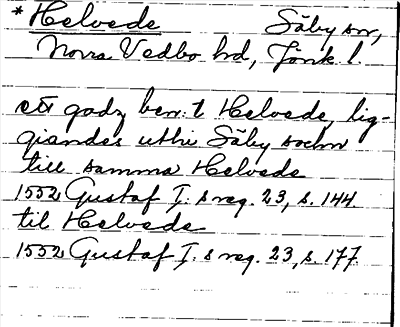 * Helvede Säby sn,
Norra Vedbo hd, Jönk l.
ett godz ben:t Helvede, lig-
giandes uthi Säby sochn
till samma Helvede
1552 Gustaf I:s reg. 23, s. 144.
til Helvede
1552 Gustaf I:s reg. 23, s. 177